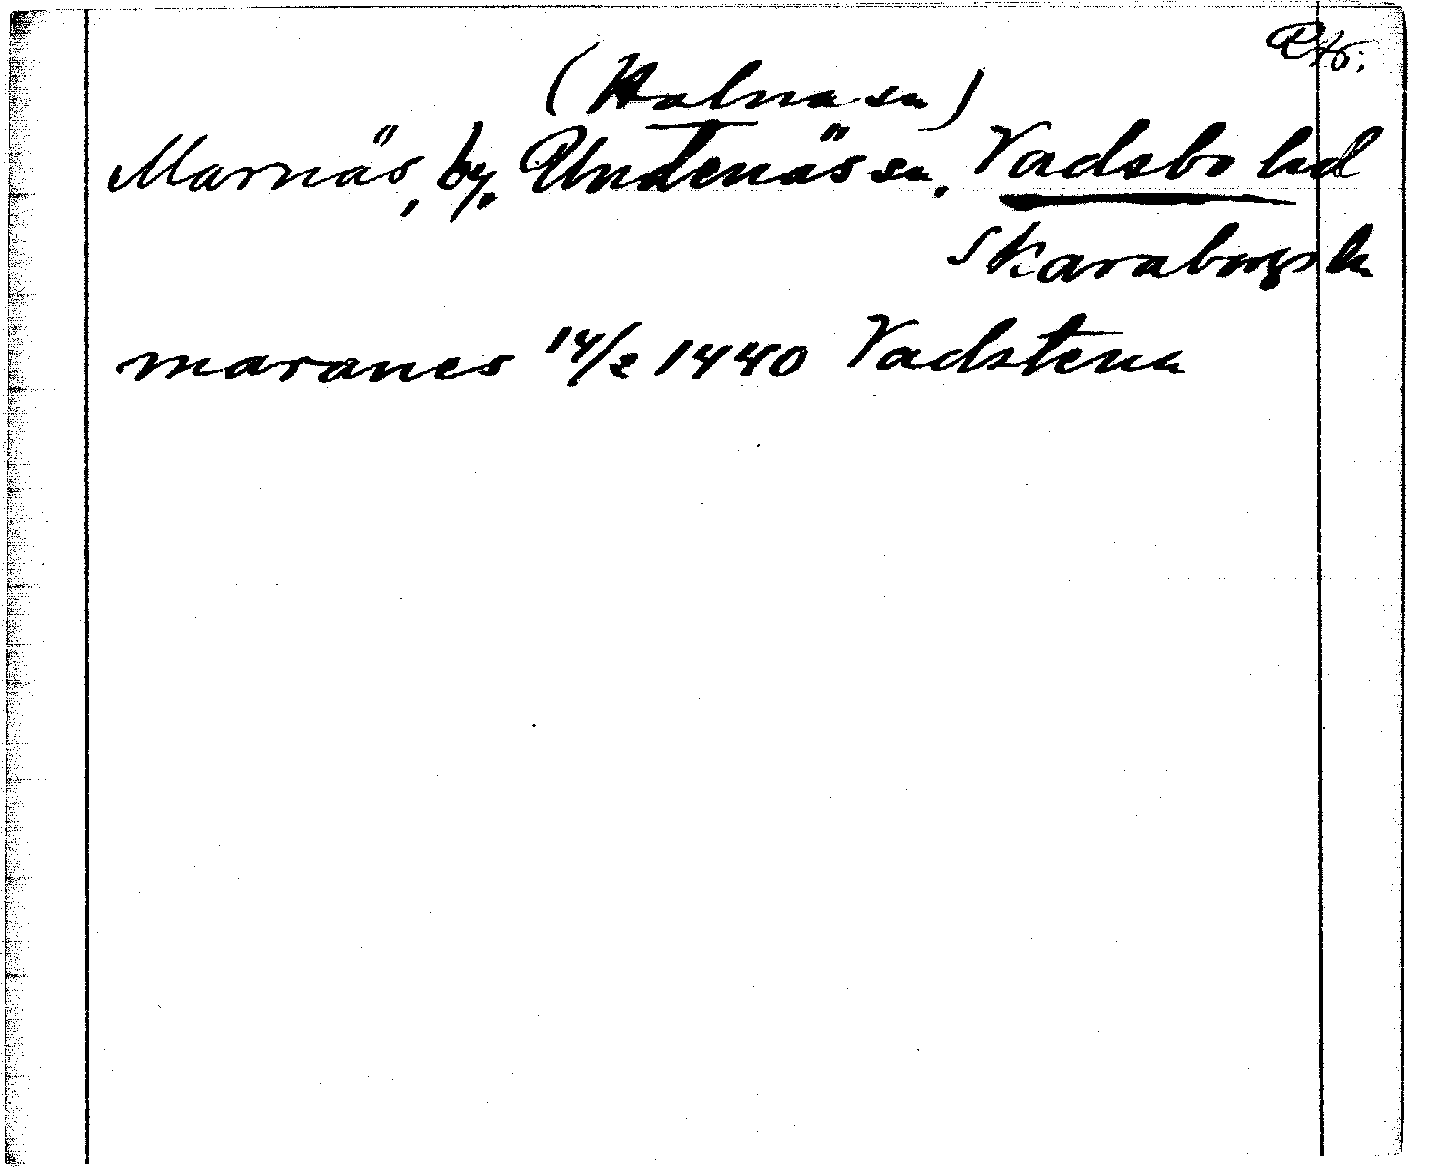 (Halna sn)
Marnäs, by. Undenäs sn. Vadsbo hd
Skaraborgs ln
maranes 14/2 1440 Vadstena